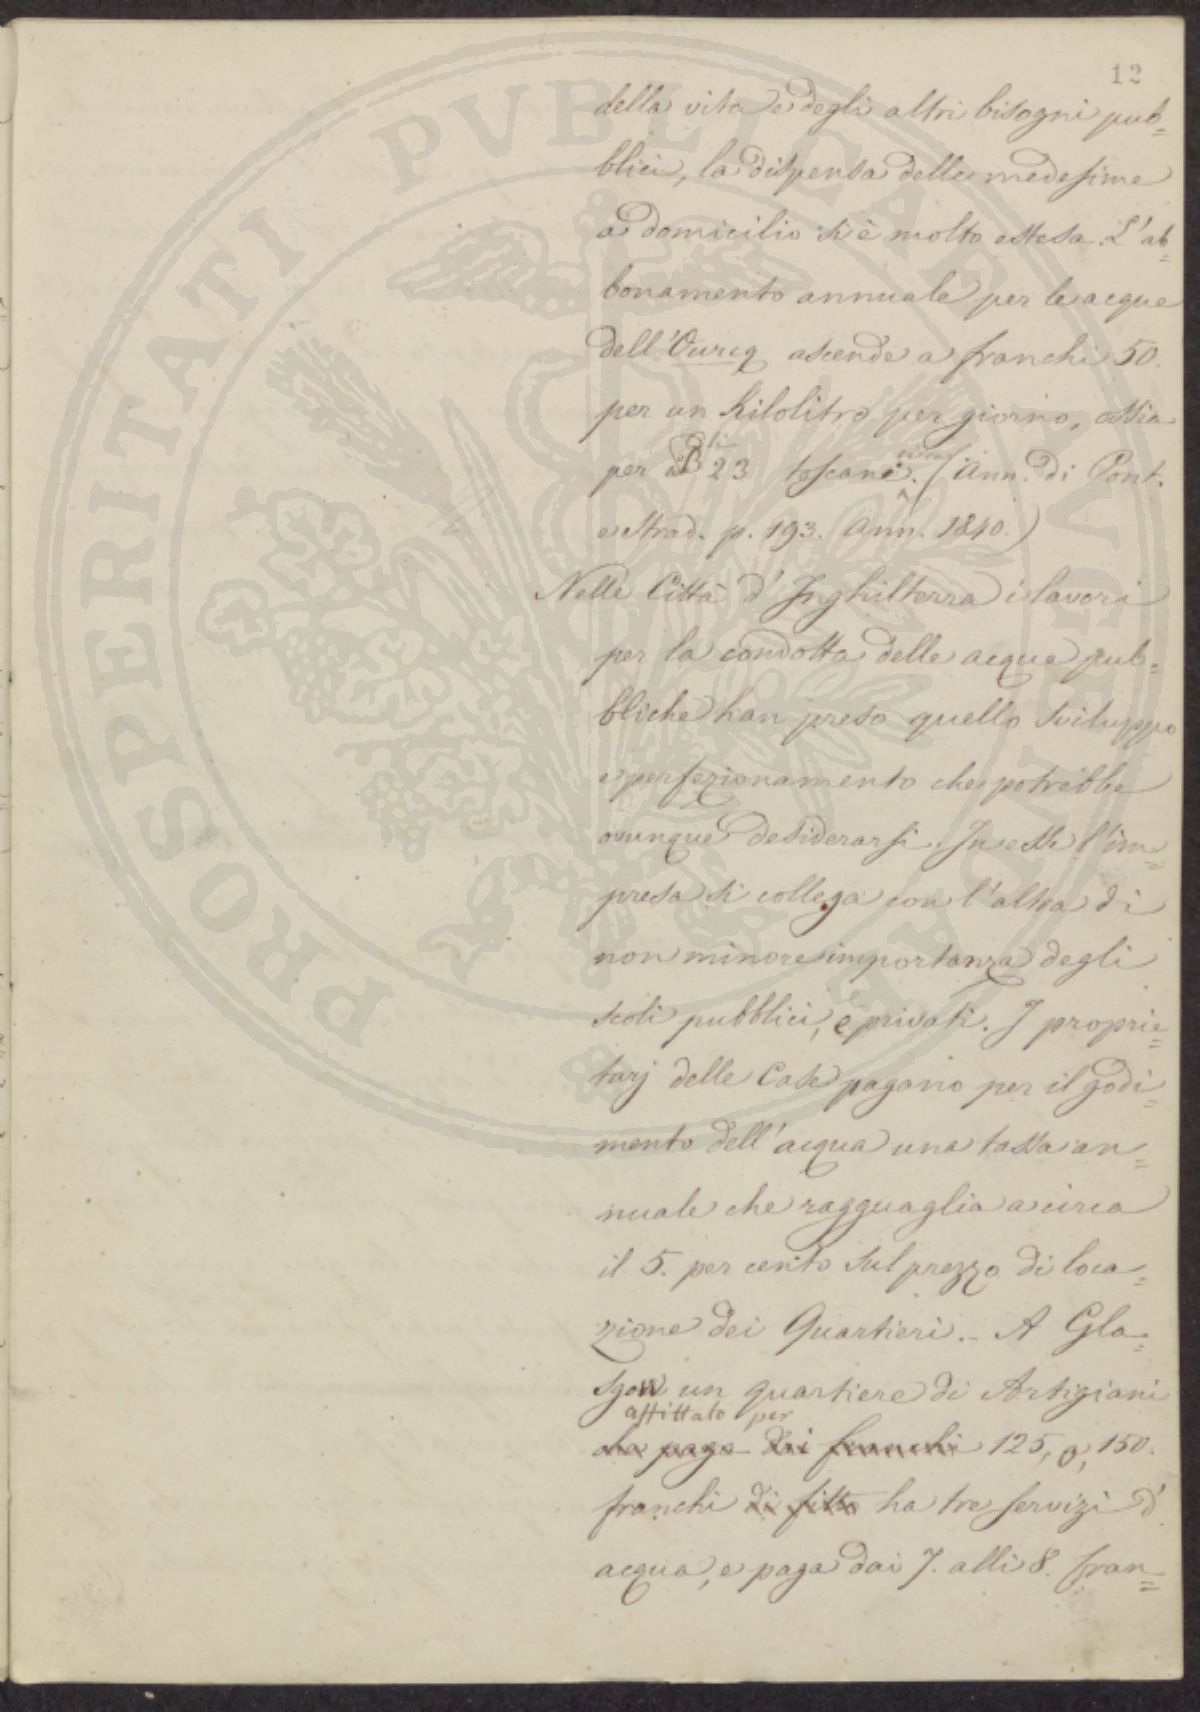 12
della vita e degli altri bisogni pub=
blici, la dispensa delle medesime
a domicilio si è molto estesa. L'ab=
bonamento annuale per le acque
dell'Ourcq ascende a franchi 50.
per un Kilolitro per giorno, ossia
per B.li 23 toscani circa. (Ann. di Pont.
e Strad. p. 193. Ann. 1840.)
Nelle Città d'Inghilterra i lavori
per la condotta delle acque pub=
bliche han preso quello sviluppo
e perfezionamento che potrebbe
ovunque desiderarsi. In esse l'im=
presa si collega con l'altra di
non minore importanza degli
scoli pubblici, e privati. I proprie=
tarj delle Case pagano per il godi=
mento dell'acqua una tassa an=
nuale che ragguaglia a circa
il 5. per cento sul prezzo di loca=
zione dei Quartieri. - A Gla=
sgow un quartiere di Artigiani
affittato per
da paga dai franchi 125, o, 150.
franchi di fitto ha tre servizi d'
acqua, e paga dai 7. alli 8. fran=
PROSPERITATI PVBLICAE